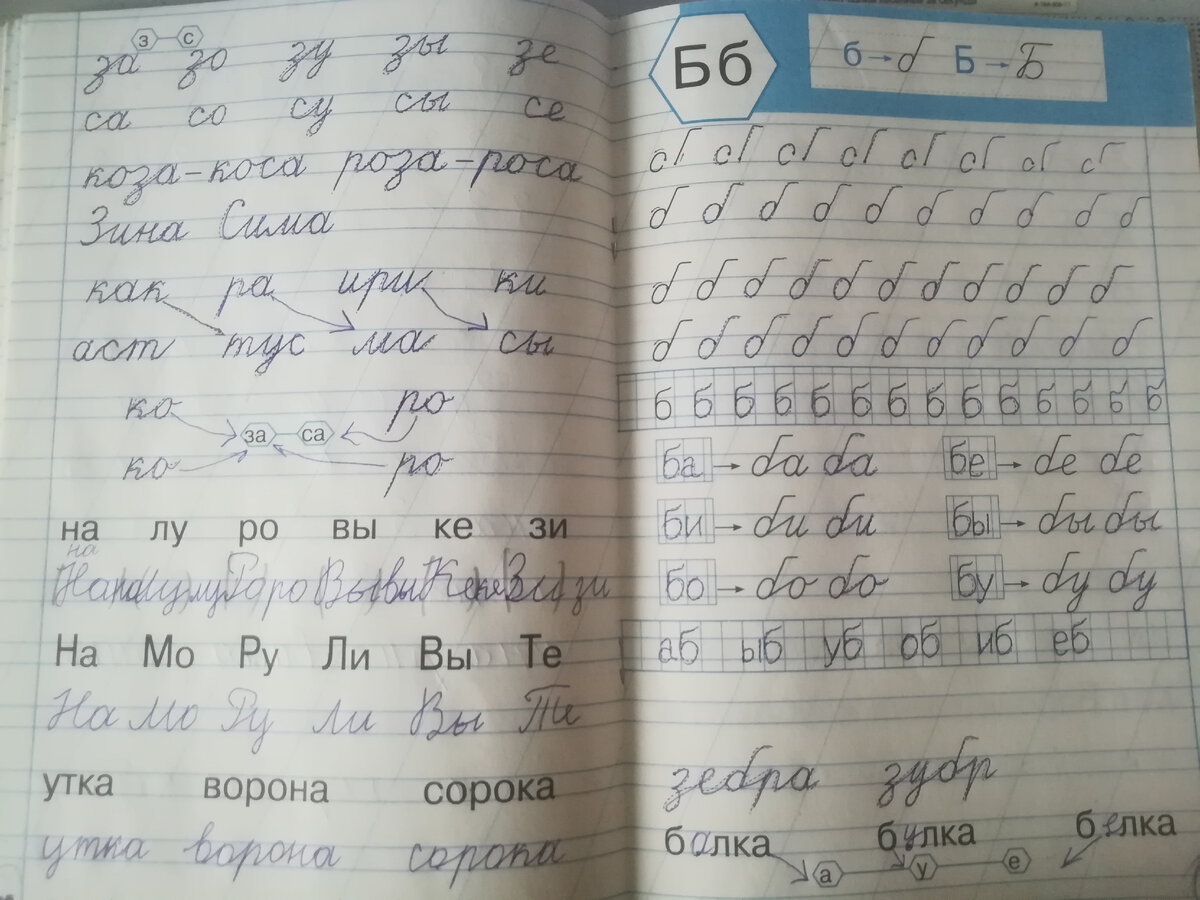 з с
за зо зу зы зе
са со су сы се
коза-коса роза-роса
Зина Сима
как ра ири ки
аст тус ма сы
ко ро
за са
ко ро
на лу ро вы ке зи
на
На Мо Ру Ли Вы Те
На Мо Ру Ли Вы Те
утка ворона сорока
утка ворона сорока
Бб б→б Б→Б
б б б б б б б б б б
б б б б б б б б б б б
б б б б б б б б б б б
б б б б б б б б б б б б б б
ба→ба ба бе→бе бе
би→би би бы→бы бы
бо→бо бо бу→бу бу
аб ыб уб об иб еб
зебра зубр
балка булка белка
а у е